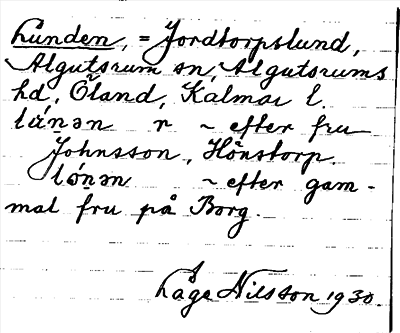 Lunden, = Jordtorpslund,
Algutsrum sn, Algutsrums
hd, Öland, Kalmar l.
lún̠ən r ~ efter fru
Johnsson, Hönstorp.
lón̠ən ~ efter gam-
mal fru på Borg.
Låge Nilsson 1930.